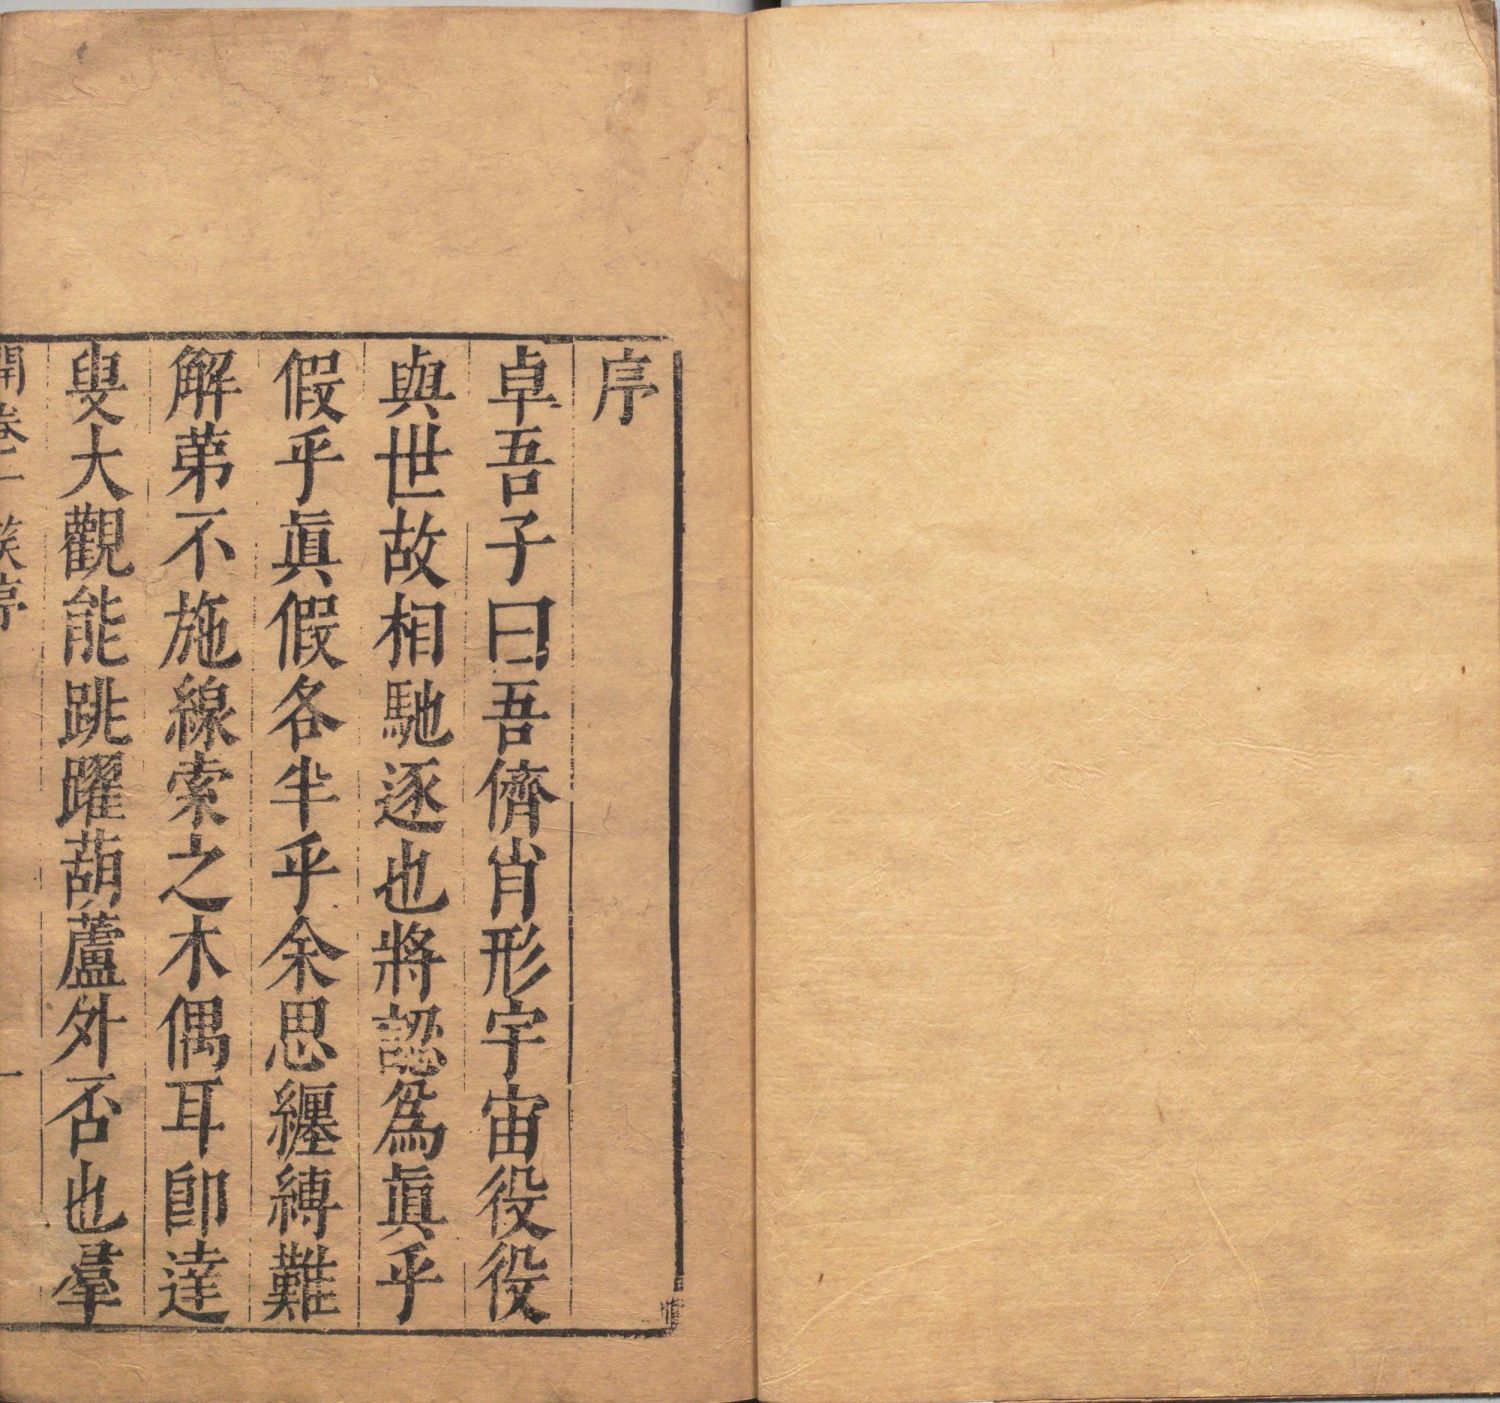 序
卓吾子曰吾儕肖形宇宙役役
與世故相馳逐也將認爲眞乎
假乎眞假各半乎余思纏縛難
解苐不施線索之木偶耳卽達
叟大觀能跳躍葫蘆外否也羣
開卷一笑序
一